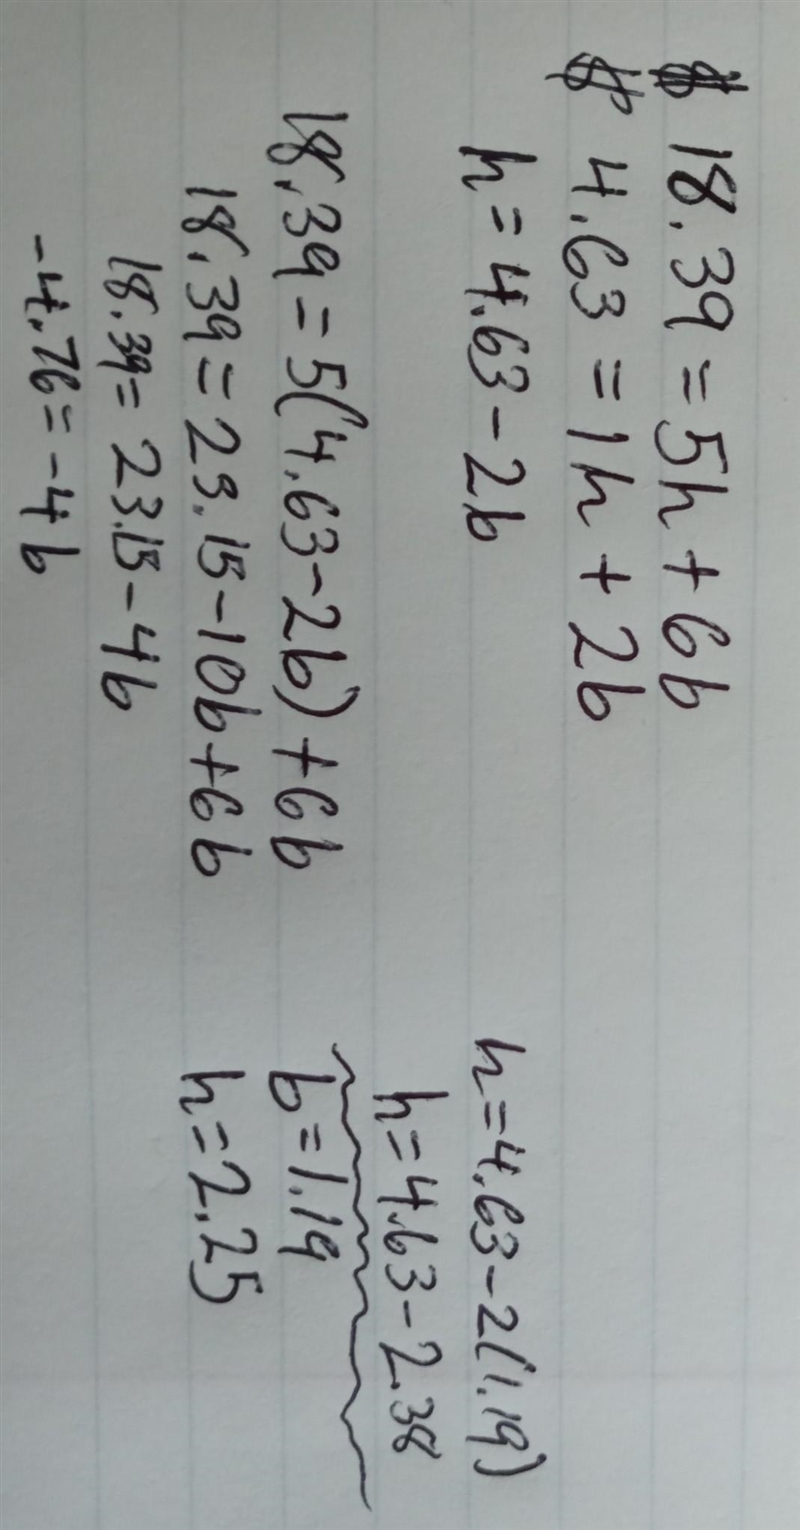 $ 18.39 = 5h + 6b
$ 4.63 = 1h + 2b
h = 4.63 - 2b
18.39 = 5(4.63 - 2b) + 6b
18.39 = 23.15 - 10b + 6b
18.39 = 23.15 - 4b
-4.76 = -4b
h = 4.63 - 2(1.19)
h = 4.63 - 2.38
b = 1.19
h = 2.25